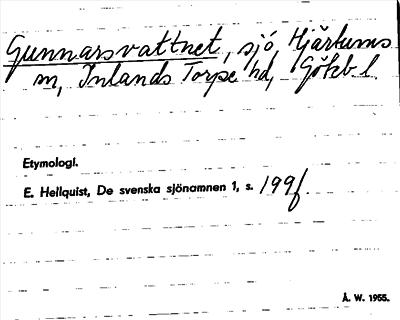 Gunnarsvattnet, sjö, Hjärtums
sn, Inlands Torpe hd, Götb. l.
Etymologi.
E. Hellquist, De svenska sjönamnen 1, s. 199f.
Å. W. 1955.